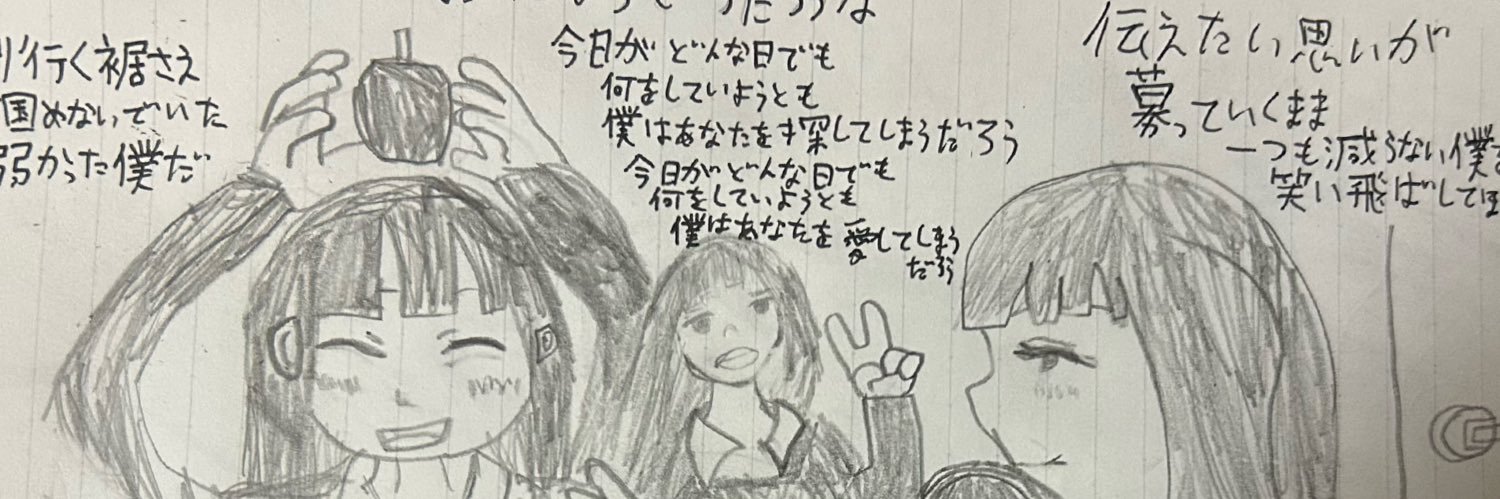 り行く裾さえ
固めないでいた
弱かった僕だ
今日がどんな日でも
何をしていようとも
僕はあなたを探してしまうだろう
今日がどんな日でも
何をしていようとも
僕はあなたを愛してしまう
だろう
伝えたい思いが
募っていくまま
一つも減らない僕を
笑い飛ばしてほ